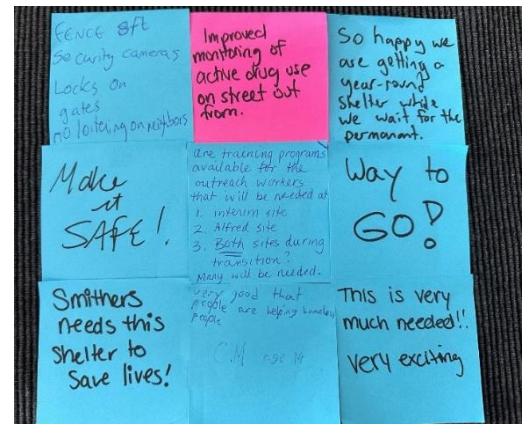 FENCE 8ft
Security cameras
Locks on
gates
no loitering on neighbors
Improved
monitoring of
active drug use
on street out
from.
So happy we
are getting a
year-round
shelter while
we wait for the
permanant.
Make
it
SAFE!
are training programs
available for the
outreach workers
that will be needed at
1. interim site
2. Alfred site
3. Both sites during
transition?
Many will be needed.
Way to
GO!
Smithers
needs this
shelter to
save lives!
very good that
people are helping homeless
people
C.M age 14
This is very
much needed!!
very exciting